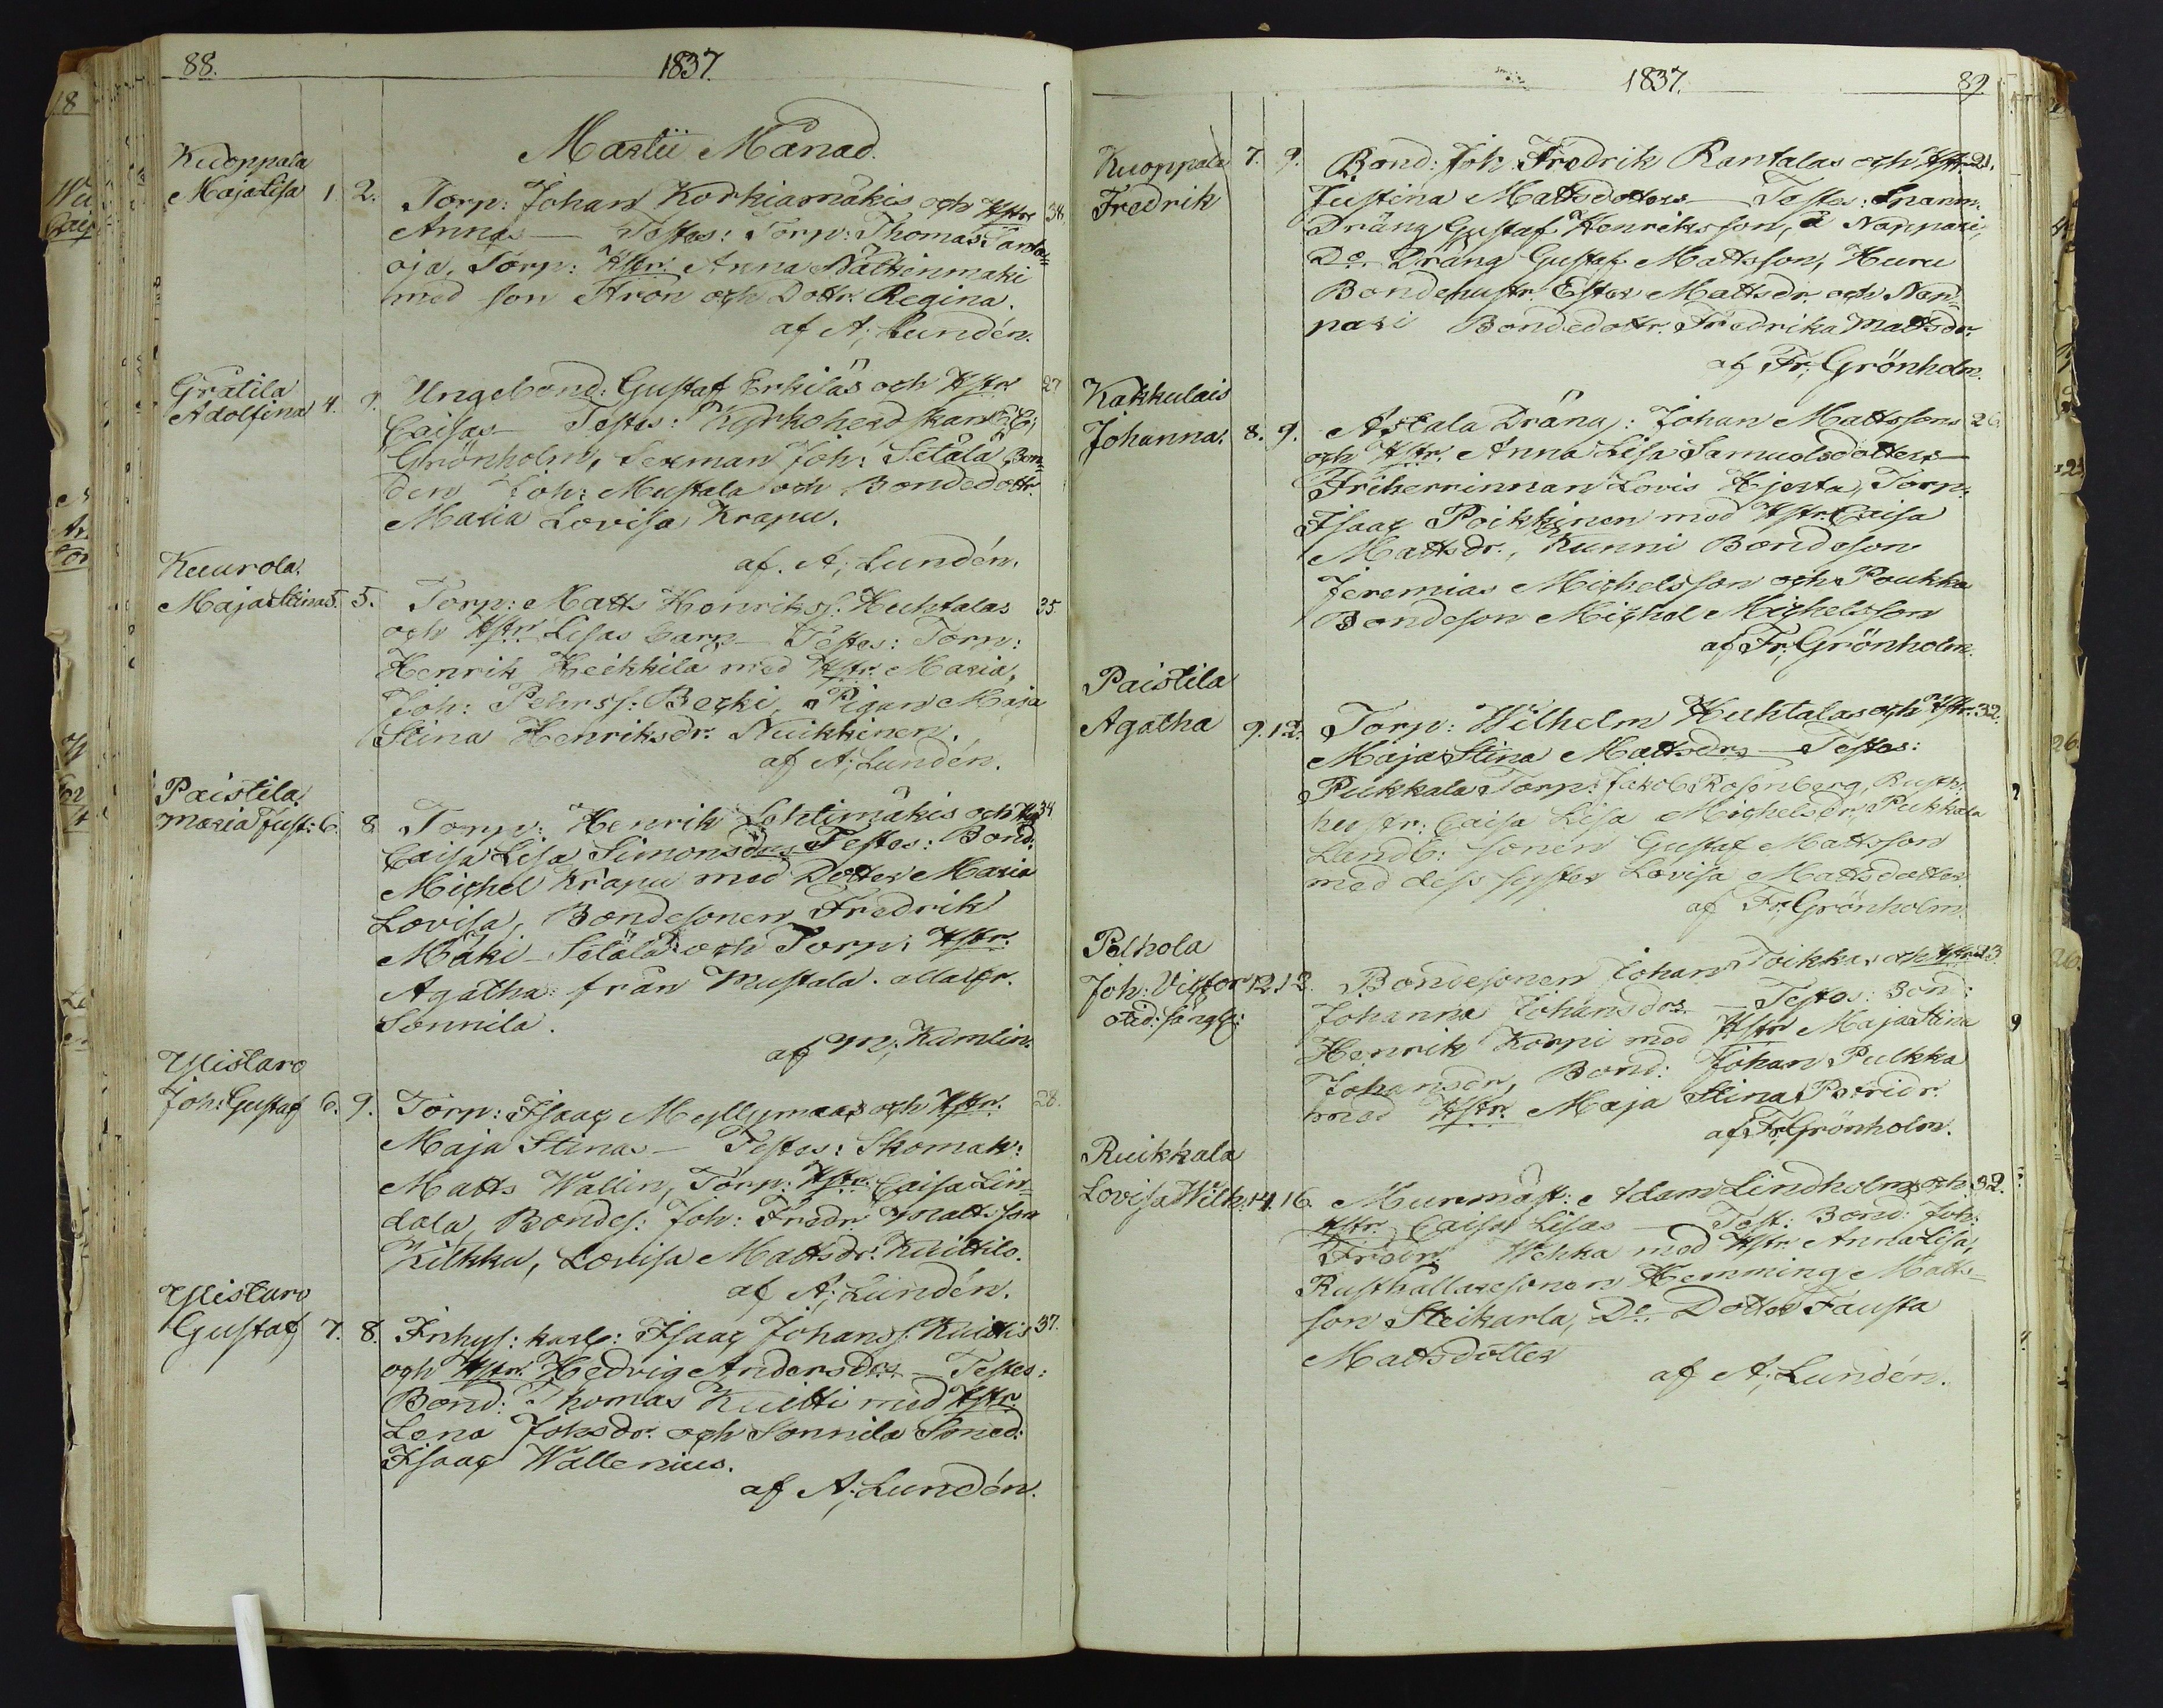 88. 1837.
Martii Månad.
Kuoppala
Maja Lisa 1. 2. Torp: Johan Korkiamäkis och Hstr 38.
Annas — Testes: Torp: Thomas Santa-
oja, Torp: Hstr. Anna Nälkinmäki
med son Aron och Dottr. Regina.
af A; Lundén.
Gratila
Adolfina 4. Unge bond: Gustaf Erkiläs och Hstr 27
Caisas — Testes: Kyrkoherdskan
Grönholm, Sexman Joh: Setälä, Bon-
den Joh: Mustala och Bondedottr.
Maria Lovisa Krapu.
af. A; Lundén.
Kuurola.
Maja Stina 5. 5. Torp: Matts Henrikss. Huhtalas 35.
och Hstr. Lisas barn — Testes: Torp:
Henrik Heikkila med Hstr. Maria,
Joh: Pehrss: Becki, Pigan Maja
Stina Henriksdr. Nuikkinen.
af A; Lundén.
Paistila
Maria Just: 6. 8 Torp: Henrik Lehtimäkis och H 34
Caisa Lisa Simonsdrs Testes: Bond.
Michel Krapu med Dotter Maria
Lovisa, Bondesonen Fredrik
Mäki-Setälä och Torp: Hstr.
Agatha: från Mustala. alla fr.
Sonnila.
af M; Kumlin.
Ylistaro
Joh: Gustaf 6. 9. Torp: Isaac Myllymaas och Hstr. 28.
Maja Stinas — Testes: Skomak:
Matts Wallin, Torp: Hstr. Caisa Lin-
dala, Bondes: Joh: Fredr Mattsson
Kilkku, Lovisa Mattsdr. Kuittilo.
af A; Lundén.
Ylistaro
Gustaf 7. 8. Inhys: karl: Isaac Johanss. Kuittis 37.
och Hstr. Hedvig Andersdrs — Testes:
Bond: Thomas Kuitti med Hstr.
Lena Johsdr. och Sonnila Smed:
Isaac Wallenius.
af A; Lundén.
1837. 89.
Kuoppala 7. 9. Bond: Joh. Fredrik Rantalas och Hstr. 21.
Fredrik Justina Mattsdotters — Testes:
Dräng Gustaf Henriksson, å Nappari,
Do. Dräng Gustaf Mattsson, Huru
Bondehustr. Ester Mattsdr. och Nap-
pari Bondedottr. Fredrika Mattsdr.
af Fr; Grönholm.
Kakkulais
Johanna. 8. 9. Astala Dräng: Johan Mattssons 26.
och Hstr. Anna Lisa Samuelsdotters —
Friherrinnan Lovis Hjerta, Torp:
Isaac Poikkinen med Hstr. Caisa
Mattsdr., Kunni Bondeson
Jeremias Michelsson och Poukka
Bondeson Michel Michelsson
af Fr; Grönholm.
Paistila
Agatha 9. 12. Torp: Wilhelm Huhtalas och Hstr. 32.
Maja Stina Mattsdrs — Testes:
Pukkala Torp: Jakob Rosenberg, Rusth:
hustr: Caisa Lisa Michelsdr, Pukkala
Landb: sonen Gustaf Mattsson
med dess syster Lovisa Mattsdotter.
af Fr: Grönholm.
Pelhola
Joh: Victor 12. 13. Bondesonen Johan Toikkas och Hstr 23.
Johanna Johansdrs. — Testes: Bond:
Henrik Korpi med Hstr Maja Stina
Johansdr, Bond: Johan Pulkka
med Hstr. Maja Stina Petridr.
af Fr; Grönholm.
Ruikkala
Lovisa Wilh: 14. 16. Murmäst: Adam Lindholms och 32.
Hstr. Caisa Lisas — Test: Bond: Joh:
Fredr. Wehka med Hstr. Anna Lisa,
Rusthållaresonen Hemming Matts-
son Steikarla, Do. Dotter Fausta
Mattsdotter
af A; Lundén.